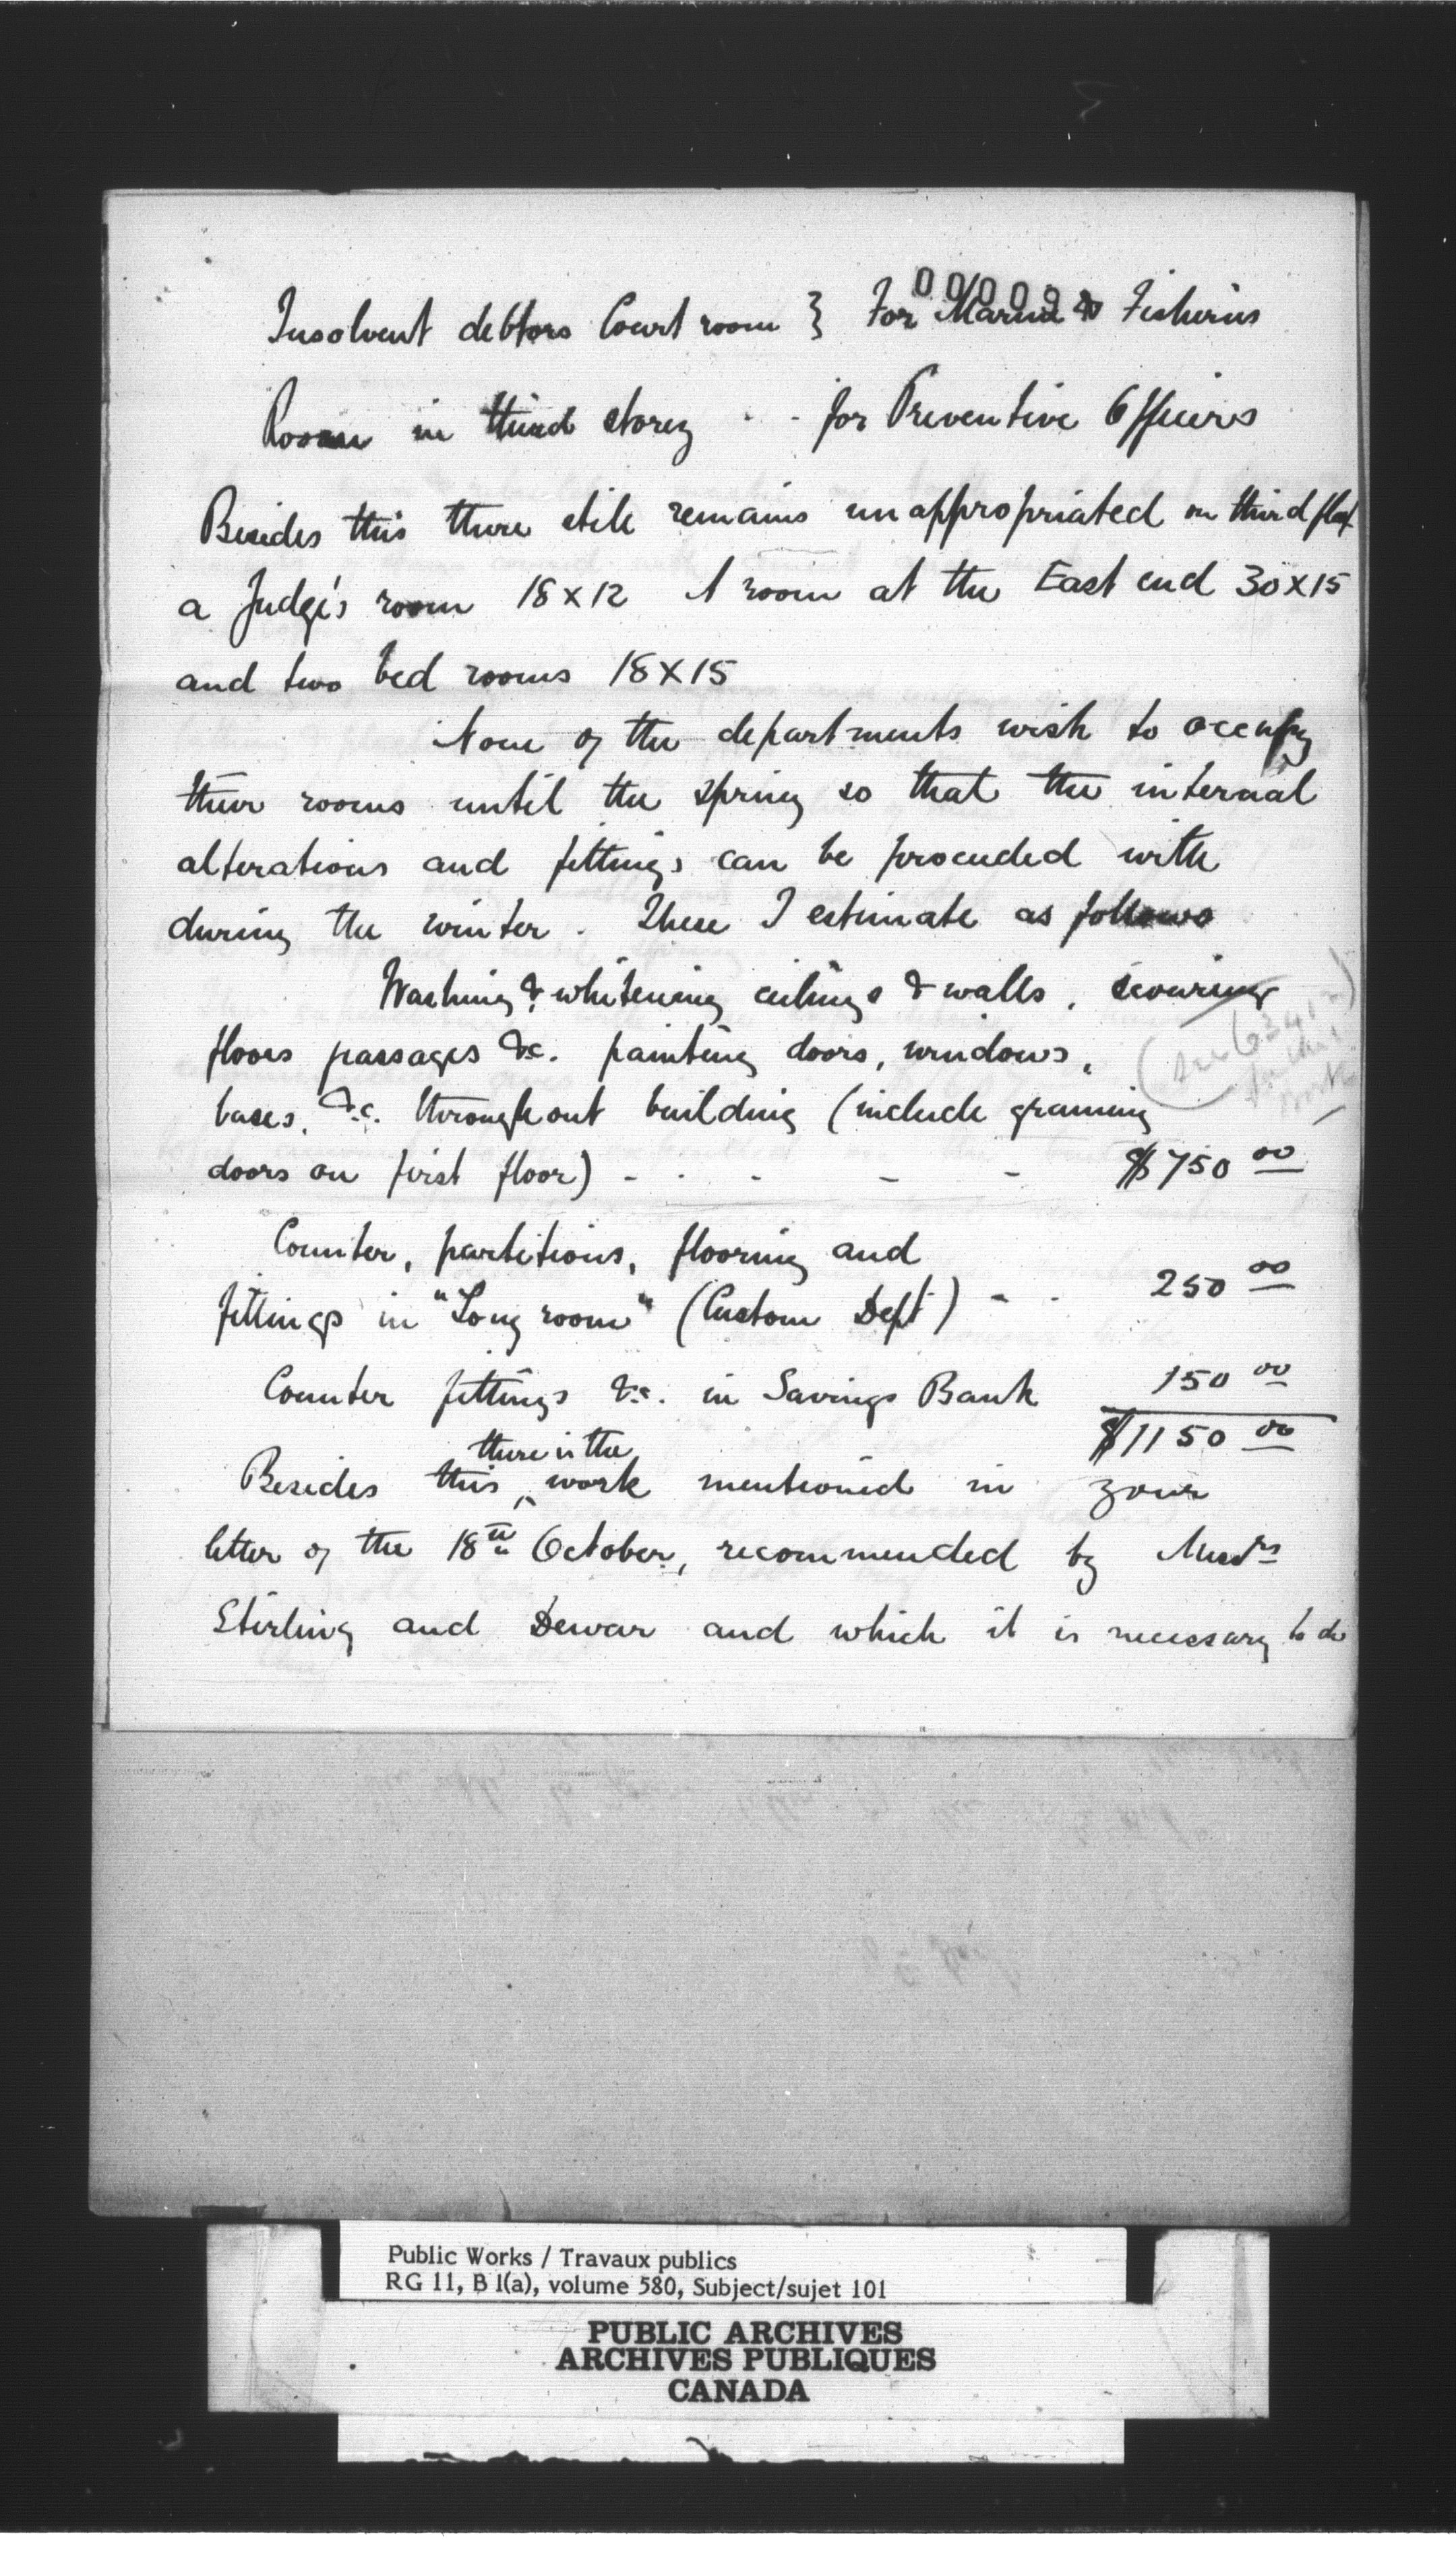 000092
Insolvent debtors Court room } For Marine & Fisheries
Room in third storey - - for Preventive Officers
Besides this there still remains unappropriated on third floor
a Judge's room 18 x 12 A room at the East end 30 x 15
and two bed rooms 18 x 15
None of the departments wish to occupy
their rooms until the spring so that the internal
alterations and fittings can be proceeded with
during the winter. These I estimate as follows
Washing & whitening ceilings & walls, scouring
floors passages &c. painting doors, windows,
bases, &c. throughout building (include graining
doors on first floor) - - - - - $750 00
Counter, partitions, flooring and
fittings in "Long room" (Custom Dept) - - 250 00
Counter fittings &c. in Savings Bank 150 00
$1150 00
there is the
Besides this ^ work mentioned in your
letter of the 18th October, recommended by Messrs
Stirling and Dewar and which it is necessary to do
Public Works / Travaux publics
RG 11, B 1(a), volume 580, Subject/sujet 101
PUBLIC ARCHIVES
ARCHIVES PUBLIQUES
CANADA